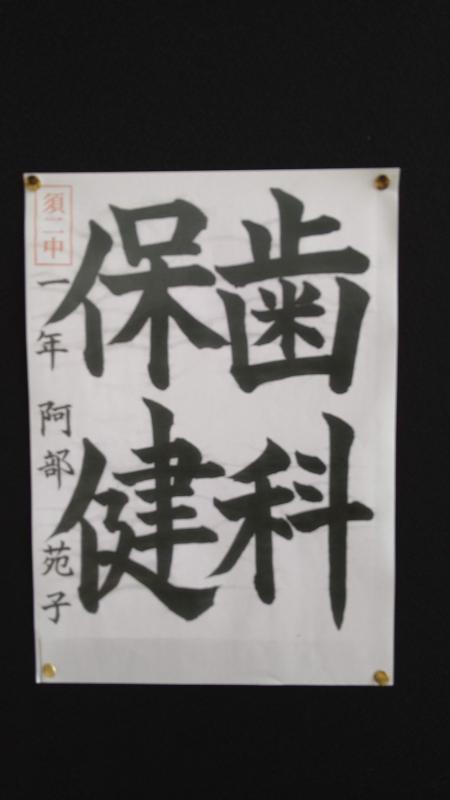 歯科
保健
須二中
一年 阿部 苑子